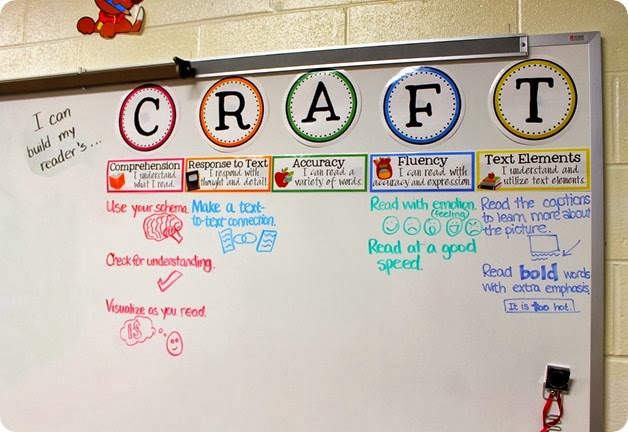 I can
build my
reader's...
C R A F T
Comprehension
I understand
what I read.
Response to Text
I respond with
thought and detail.
Accuracy
I can read a
variety of words.
Fluency
I can read with
accuracy and expression.
Text Elements
I understand and
utilize text elements.
Use your schema.
Check for understanding.
Visualize as you read.
Make a text-
to-text connection.
Read with emotion.
(feeling)
Read at a good
speed.
Read the captions
to learn more about
the picture.
Read bold words
with extra emphasis.
It is too hot.